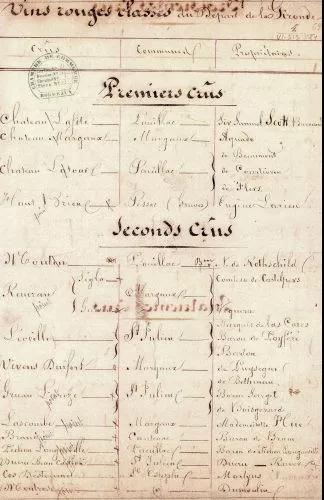 Vins rouges classés du Départ. de la Gironde
Crûs Communes Propriétaires
CHAMBRE DE COMMERCE BORDEAUX
Premiers Crûs
Chateau Lafite Pauillac Sir Samuel Scott
Chateau Margaux Margaux Aguado
Chateau Latour Pauillac de Beaumont
de Courtivron
de Flers
Haut Brion Pessac (Graves) Eugène Larrieu
Seconds Crûs
Mouton Pauillac Bon N. de Rothschild
Rauzan Ségla Margaux Comtesse de Castelpers
Léoville St Julien Marquis de Las Cases
Baron de Poyféré
Barton
Vivens Durfort Margaux de Puységur
de Bethmann
Gruau Laroze St Julien Baron Sarget
de Boisgerard
Lascombe Margaux Mademoiselle Hue
Brane Cantenac Baron de Brane
Pichon Longueville Pauillac Baron de Pichon Longueville
Ducru Beau Caillou St Julien Ducru Ravez
Cos Destournel St Estèphe Martyns
Montrose Dumoulin